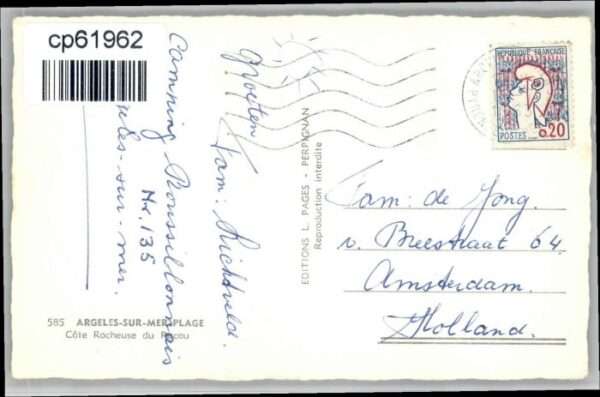 cp61962
Camping Roussillonnais
Nr. 135
sur-mer.
groeten
Fam: Lichtveld.
EDITIONS L. PAGES - PERPIGNAN
Reproduction interdite
REPUBLIQUE FRANÇAISE
0,20
POSTES
Fam: de Jong.
v. Breestraat 64.
Amsterdam.
Holland.
585 ARGELES-SUR-MER-PLAGE
Côte Rocheuse du Racou